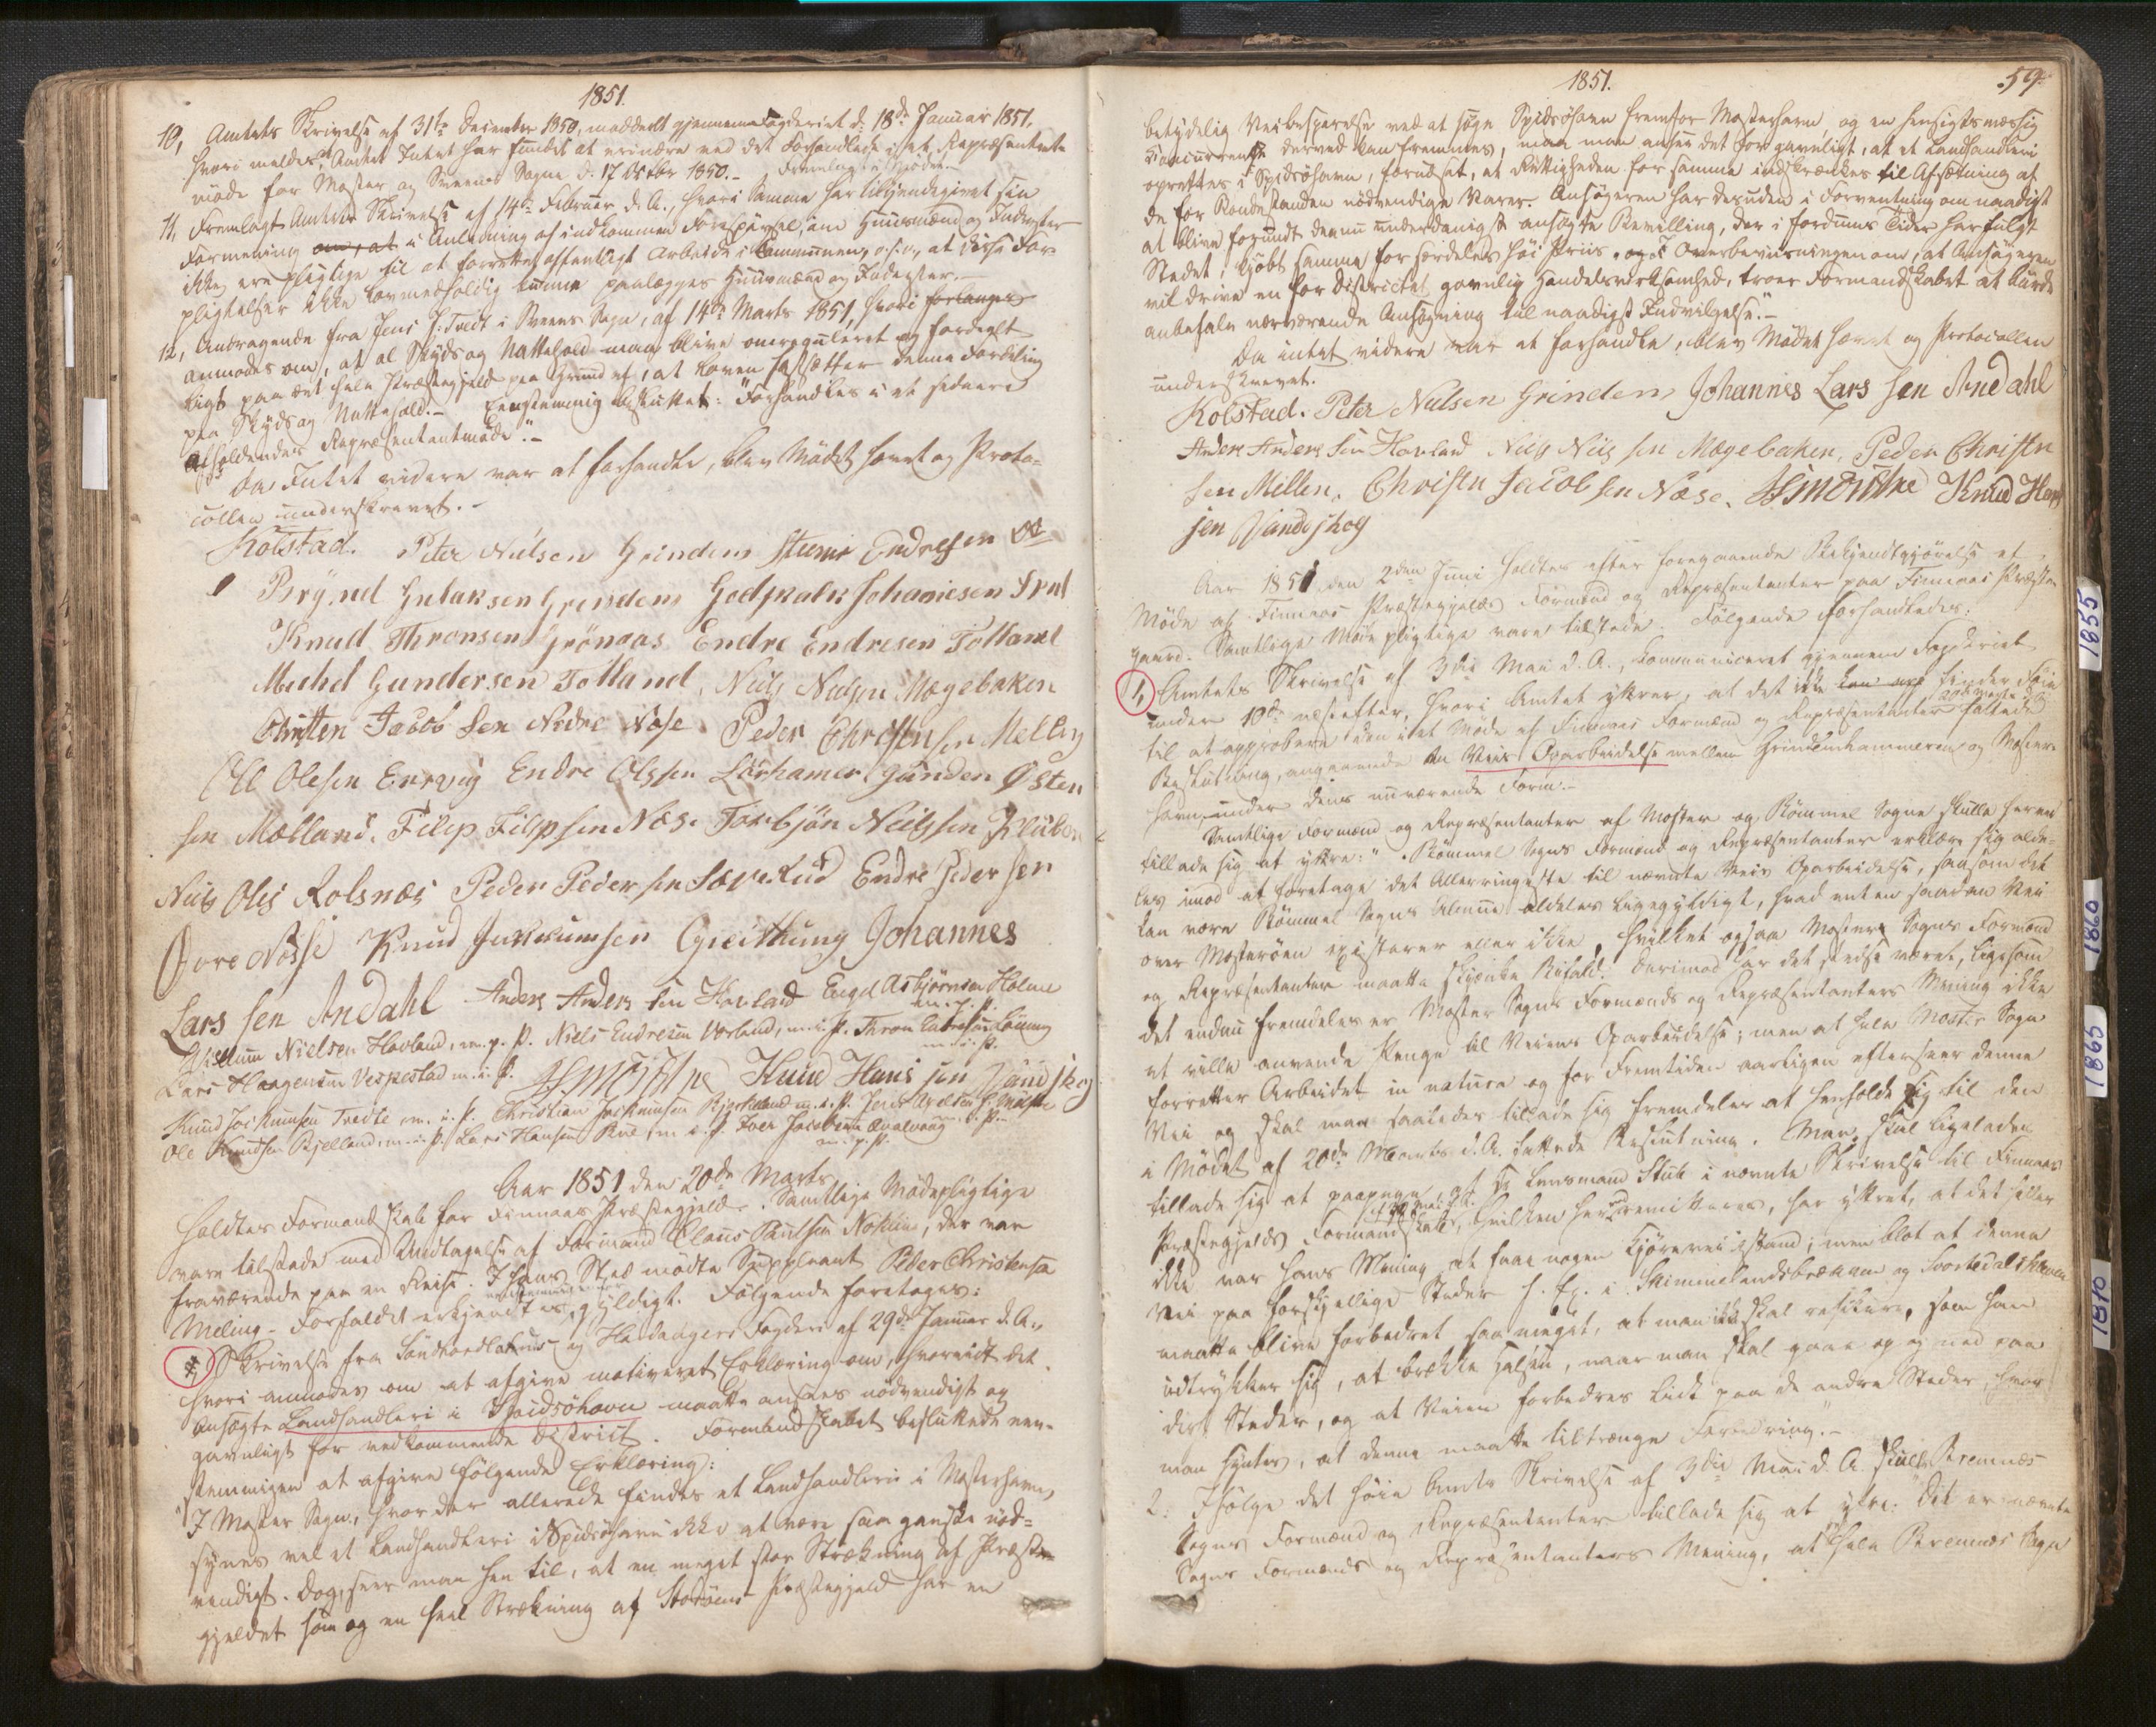 1851.
10, Amtets Skrivelse af 31te December 1850, meddeelt gjennem Fogderiet d: 18de Januar 1851,
hvori meldes, Amtet Intet har fundet at erindre ved det Forhandlede i et Repræsentant-
møde for Moster og Bremnes Sogne d. 17 Octbr 1850. - Fremlagt i Mødet. -
11, Fremlagt Amtets Skrivelse af 14de Februar d. A., hvori Samme har tilkjendegivet sin
Formening om, at i Anledning af indkommen Forespørsel, om Huusmænd og Inderster
ikke ere pligtige til at forrette offentligt Arbeide i Communen, o.s.v., at disse For-
pligtelser ikke lovmedholdig kunne paalægges Huusmænd og Inderster. -
12, Andragende fra Jens J. Tvedt i Bremnes Sogn, af 14de Marts 1851, hvori forlanges
anmodes om, at al Skyds og Nattehold maa blive omreguleret og fordeelt
ligt paa det hele Præstegjeld paa Grund af, at Loven fastsætter denne Fordeling
paa Skyds og Nattehold. - Eenstemmig besluttet: "Forhandles i et sednere
afholdendes Repræsentantmøde". -
Da Intet videre var at forhandle, blev Mødet hævet og Proto-
collen underskrevet. -
Kolstad. Peter Nielsen Grindem Steener Endresen
Brynd Gulaksen Grindem Godskalk Johanesen
Knud Thronsen Grönaas Endre Endresen Tolland
Michel Gundersen Tolland, Niels Nielsen Mæyebaken
Christen Jacob Sen Nedre Nose Peder Christensen Melling
Oll Olesen Ervvig Endre Olssen Lörhamer Gunden Østen
sen Mælland. Filip Filipsen Nose Torbjön Neilssen
Niels Olis Rolsnæs Peder Peder sen Sævelud Endre Peder sen
Øvre Nose Knud Johannes
Lars sen Andahl Anders Anders sen Hovland Engel Asbjørnsen Holme
m.i.P.
Willum Nielsen Hovland, m.p.P. Niels Endresen Vorland, m.i.P. Thron Endresen Lønning
m.i.P.
Lars Haagensen Vespestad m.i.P. Knud Hans sen Vandskog
Knud Jockumsen Tvedte m.i.P. Christian Jockumsen Bjelland m.i.P. Jens
Ole Knudsen Bjelland, m.i.P. Lars Hansen m.i.P. Iver Jacobsen Qvalvaag m.i.P.
m.p.P.
Aar 1851 den 20de Marts
holdtes Formandskab for Finnaas Præstegjeld. Samtlige Mødepligtige
vare tilstede med Undtagelse af Formand Claus Paulsen Notland, der var
fraværende paa en Reise. I hans Sted mødte Suppleant Peder Christensen
Meling - Forfaldet erkjendtes gyldigt. Følgende foretoges:
Skrivelse fra Søndhordlehns og Hardangers Fogderi af 29de Januar d. A.,
hvori anmodes om at afgive motiveret Erklæring om, hvorvidt det
ansøgte Landhandleri i Spidsøhavn maatte ansees nødvendigt og
gavnligt for vedkommende District. Formandskabet besluttede een-
stemmigen at afgive følgende Erklæring:
"I Moster Sogn, hvor der allerede findes et Landhandleri i Mosterhavn,
synes vel et Landhandleri i Spidsøhavn ikke at være saa ganske nød-
vendigt. Dog, seer man hen til, at en meget stor Strækning af Præste-
gjeldet som og en heel Strækning af Storöens Præstegjeld har en
1851.
59.
betydelig Veibesparelse ved at søge Spidsøhavn fremfor Mosterhavn, og en hensigtsmæssig
Concurrence derved kan fremmes, maa man ansee det for gavnligt, at et Landhandleri
oprettes i Spidsøhavn, forudsat, at Rettigheden for samme indskrænkes til Afsætning af
de for Bondestanden nødvendige Varer. Ansøgeren har desuden i Forventning om naadigst
at blive forundt denne underdanigst ansøgte Bevilling, der i fordums Tider har fulgt
Stedet, kjöbt samme for særdeles høi Priis, og i Overbeviisningen om, at Ansøgeren
vil drive en for Districtet gavnlig Handelsvirksomhed, troer Formandskabet at burde
anbefale nærværende Ansøgning til naadigst Indvilgelse." -
Da intet videre var at forhandle, blev Mödet hævet og Protocollen
underskrevet.
Kolstad. Peter Nielsen Grindem Johannes Lars sen Andahl
Anders Anders sen Hovland Niels Niels sen Mæyebaken, Peder Christen
sen Millen. Christen Jacob sen Nose. Knud Hans
sen Vandshog
Aar 1851 den 2den Juni holdtes efter foregaaende Bekjendtgjörelse et
Møde af Finnaas Præstegjelds Formænd og Repræsentanter paa Finnaas Præste-
gaard. Samtlige Mødepligtige vare tilstede. Følgende forhandledes:
1, Amtets Skrivelse af 3die Mai d. A., communiceret gjennem Fogderiet
under 10de næstefter, hvori Amtet yttrer, at det ikke kan finder Föie
til at approbere den i et Møde af Finnaas Formænd og Repræsentanter fattede
Beslutning, angaaende en Veis Oparbeidelse mellem Grindemhammeren og Moster-
havn, under dens nuværende Form. -
Samtlige Formænd og Repræsentanter af Moster og Bömmel Sogne skulle herved
tillade sig at yttre: "Bömmel Sogns Formænd og Repræsentanter erklære sig alde-
les imod at foretage det Allerringeste til nævnte Veis Oparbeidelse, saasom det
kan være Bömmel Sogns Almue aldeles ligegyldigt, hvad enten saadan Vei
over Mosterøen existerer eller ikke, hvilket ogsaa Mosters Sogns Formænd
og Repræsentanter maatte skjenke Bifald. Derimod har det stedse været, ligesom
det endnu fremdeles er Moster Sogns Formænds og Repræsentanters Mening ikke
at ville anvende Penge til Veiens Oparbeidelse; men at hele Moster Sogn
forretter Arbeidet in natura og for Fremtiden aarligen efterseer denne
Vei og skal man saaledes tillade sig fremdeles at henholde sig til den
i Mødet af 20de Marts d. A. fattede Beslutning. Man skal ligeledes
tillade sig at paapege, at Hr Lensmand Stub i nævnte Skrivelse til Finnaas
Præstegjelds Formandskab, hvilken herved remitteres, har yttret, at det heller
ikke var hans Mening at faae nogen Kjörevei istand; men blot at denne
Vei paa forskjellige Steder f. Ex. i Skimmelandsbrækken og Svortedalskleven
maatte blive forbedret saa meget, at man ikke skal risikere, som han
udtrykker sig, at brække Halsen, naar man skal gaae op og ned paa
disse Steder, og at Veien forbedres lidt paa de andre Steder, hvor
man syntes, at denne maatte tiltrænge Forbedring." -
2: Ifølge det høie Amts Skrivelse af 3die Mai d. A. skulle Bremnæs
Sogns Formænd og Repræsentanter tillade sig at yttre: "Det er nævnte
Sogns Formænds og Repræsentanters Mening, at hele Bremnæs Sogn
1855
1860
1865
1870